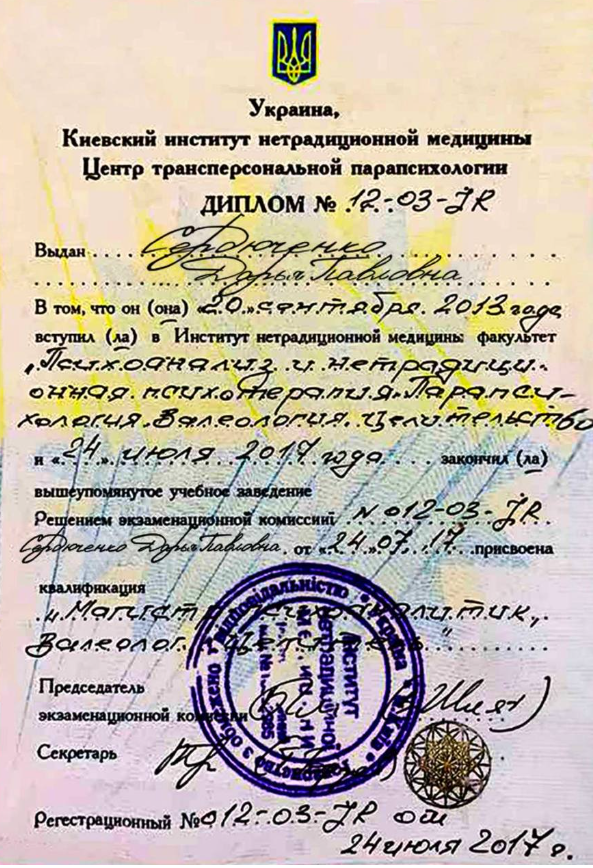 Украина,
Киевский институт нетрадиционной медицины
Центр трансперсональной парапсихологии
ДИПЛОМ № 12-03-JR
Выдан Сердюченко
Дарья Павловна
В том, что он (она) «20» сентября 2013 года
вступил (ла) в Институт нетрадиционной медицины факультет
„Психоанализ и нетрадици-
онная психотерапия. Парапси-
хология. Валеология. Целительство
и «24» июля 2017 года закончил (ла)
вышеупомянутое учебное заведение
Решением экзаменационной комиссиі N 012-03-JR
Сердюченко Дарья Павловна от «24.07.17 присвоена
квалификация
„Магистр, психоаналитик,
Валеолог, Целитель"
Председатель
экзаменационной комиссии
Секретарь
Регестрационный №012-03-JR от
24 июля 2017 г.
Товариство з обмеженою відповідальністю * Україна * м. Київ *
Інститут
нетрадиційної